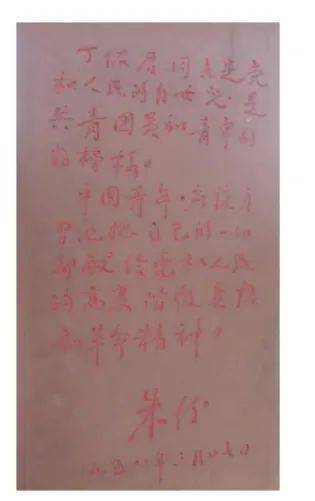 丁佑君同志是党
和人民的好女儿.是
共青团员和青年的
好榜样。
中国青年,应该学
习她把自己的一切
都献给党和人民
的高度阶级觉悟
和革命精神。
朱德
一九五八年三月廿七日